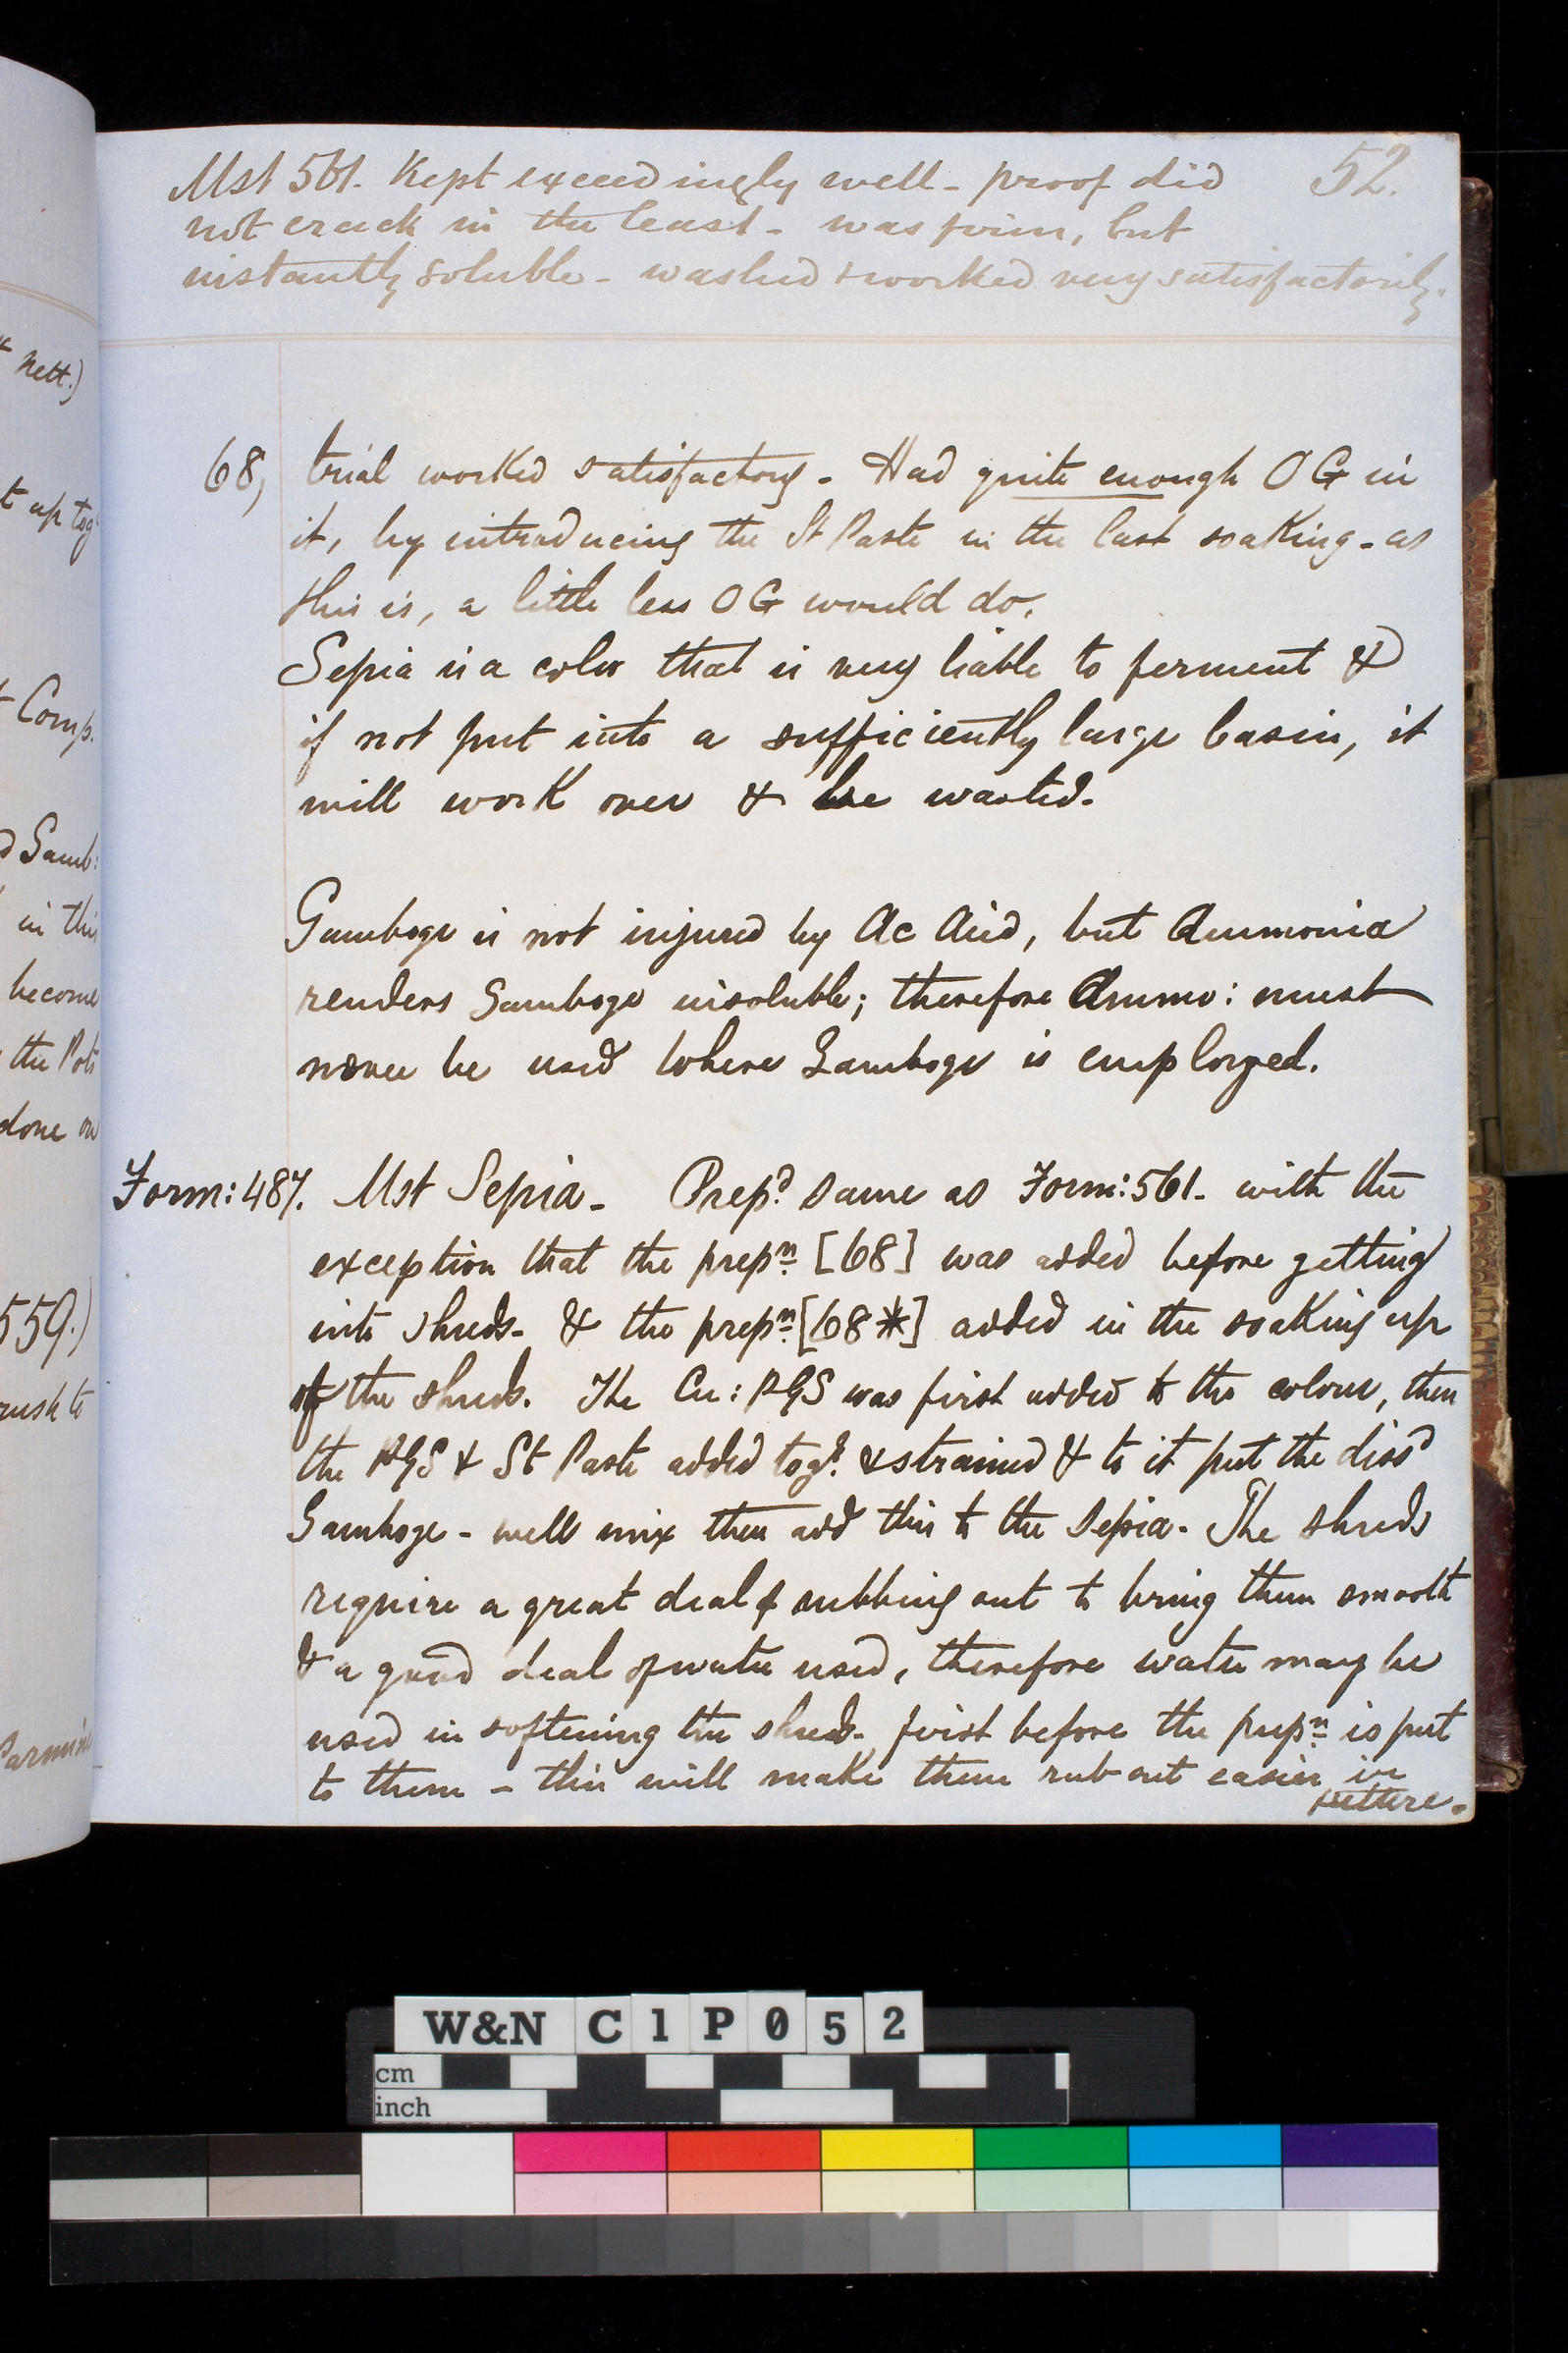 Mst 561. Kept exceedingly well - proof did 52.
not crack in the least - was firm, but
instantly soluble - washed & worked very satisfactorily.
68, trial worked satisfactory - Had quite enough OG in
it, by introducing the St Paste in the last soaking - as
this is, a little less OG would do.
Sepia is a color that is very liable to ferment &
if not put into a sufficiently large basin, it
will work over & be wasted.
Gamboge is not injured by Ac Acid, but Ammonia
renders Gamboge insoluble; therefore Ammo: must
never be used where Gamboge is employed.
Form: 487. Mst Sepia - Prepd same as Form: 561 - with the
exception that the prepn [68] was added before getting
into shreds - & the prepn [68*] added in the soaking up
of the shreds. The Cu: PGS was first added to the colour, then
the PGS & St Paste added togr & strained & to it put the dissd
Gamboge - well mix then add this to the Sepia - The shreds
require a great deal of rubbing out to bring them smooth
& a good deal of water used, therefore water may be
used in softening the shreds - first before the prepn is put
to them - this will make them rub out easier in
future.
Nett.)
up tog
Comp.
Gamb:
in this
become
the Pots
done on
559.)
rush to
W&N C1P052
cm
inch